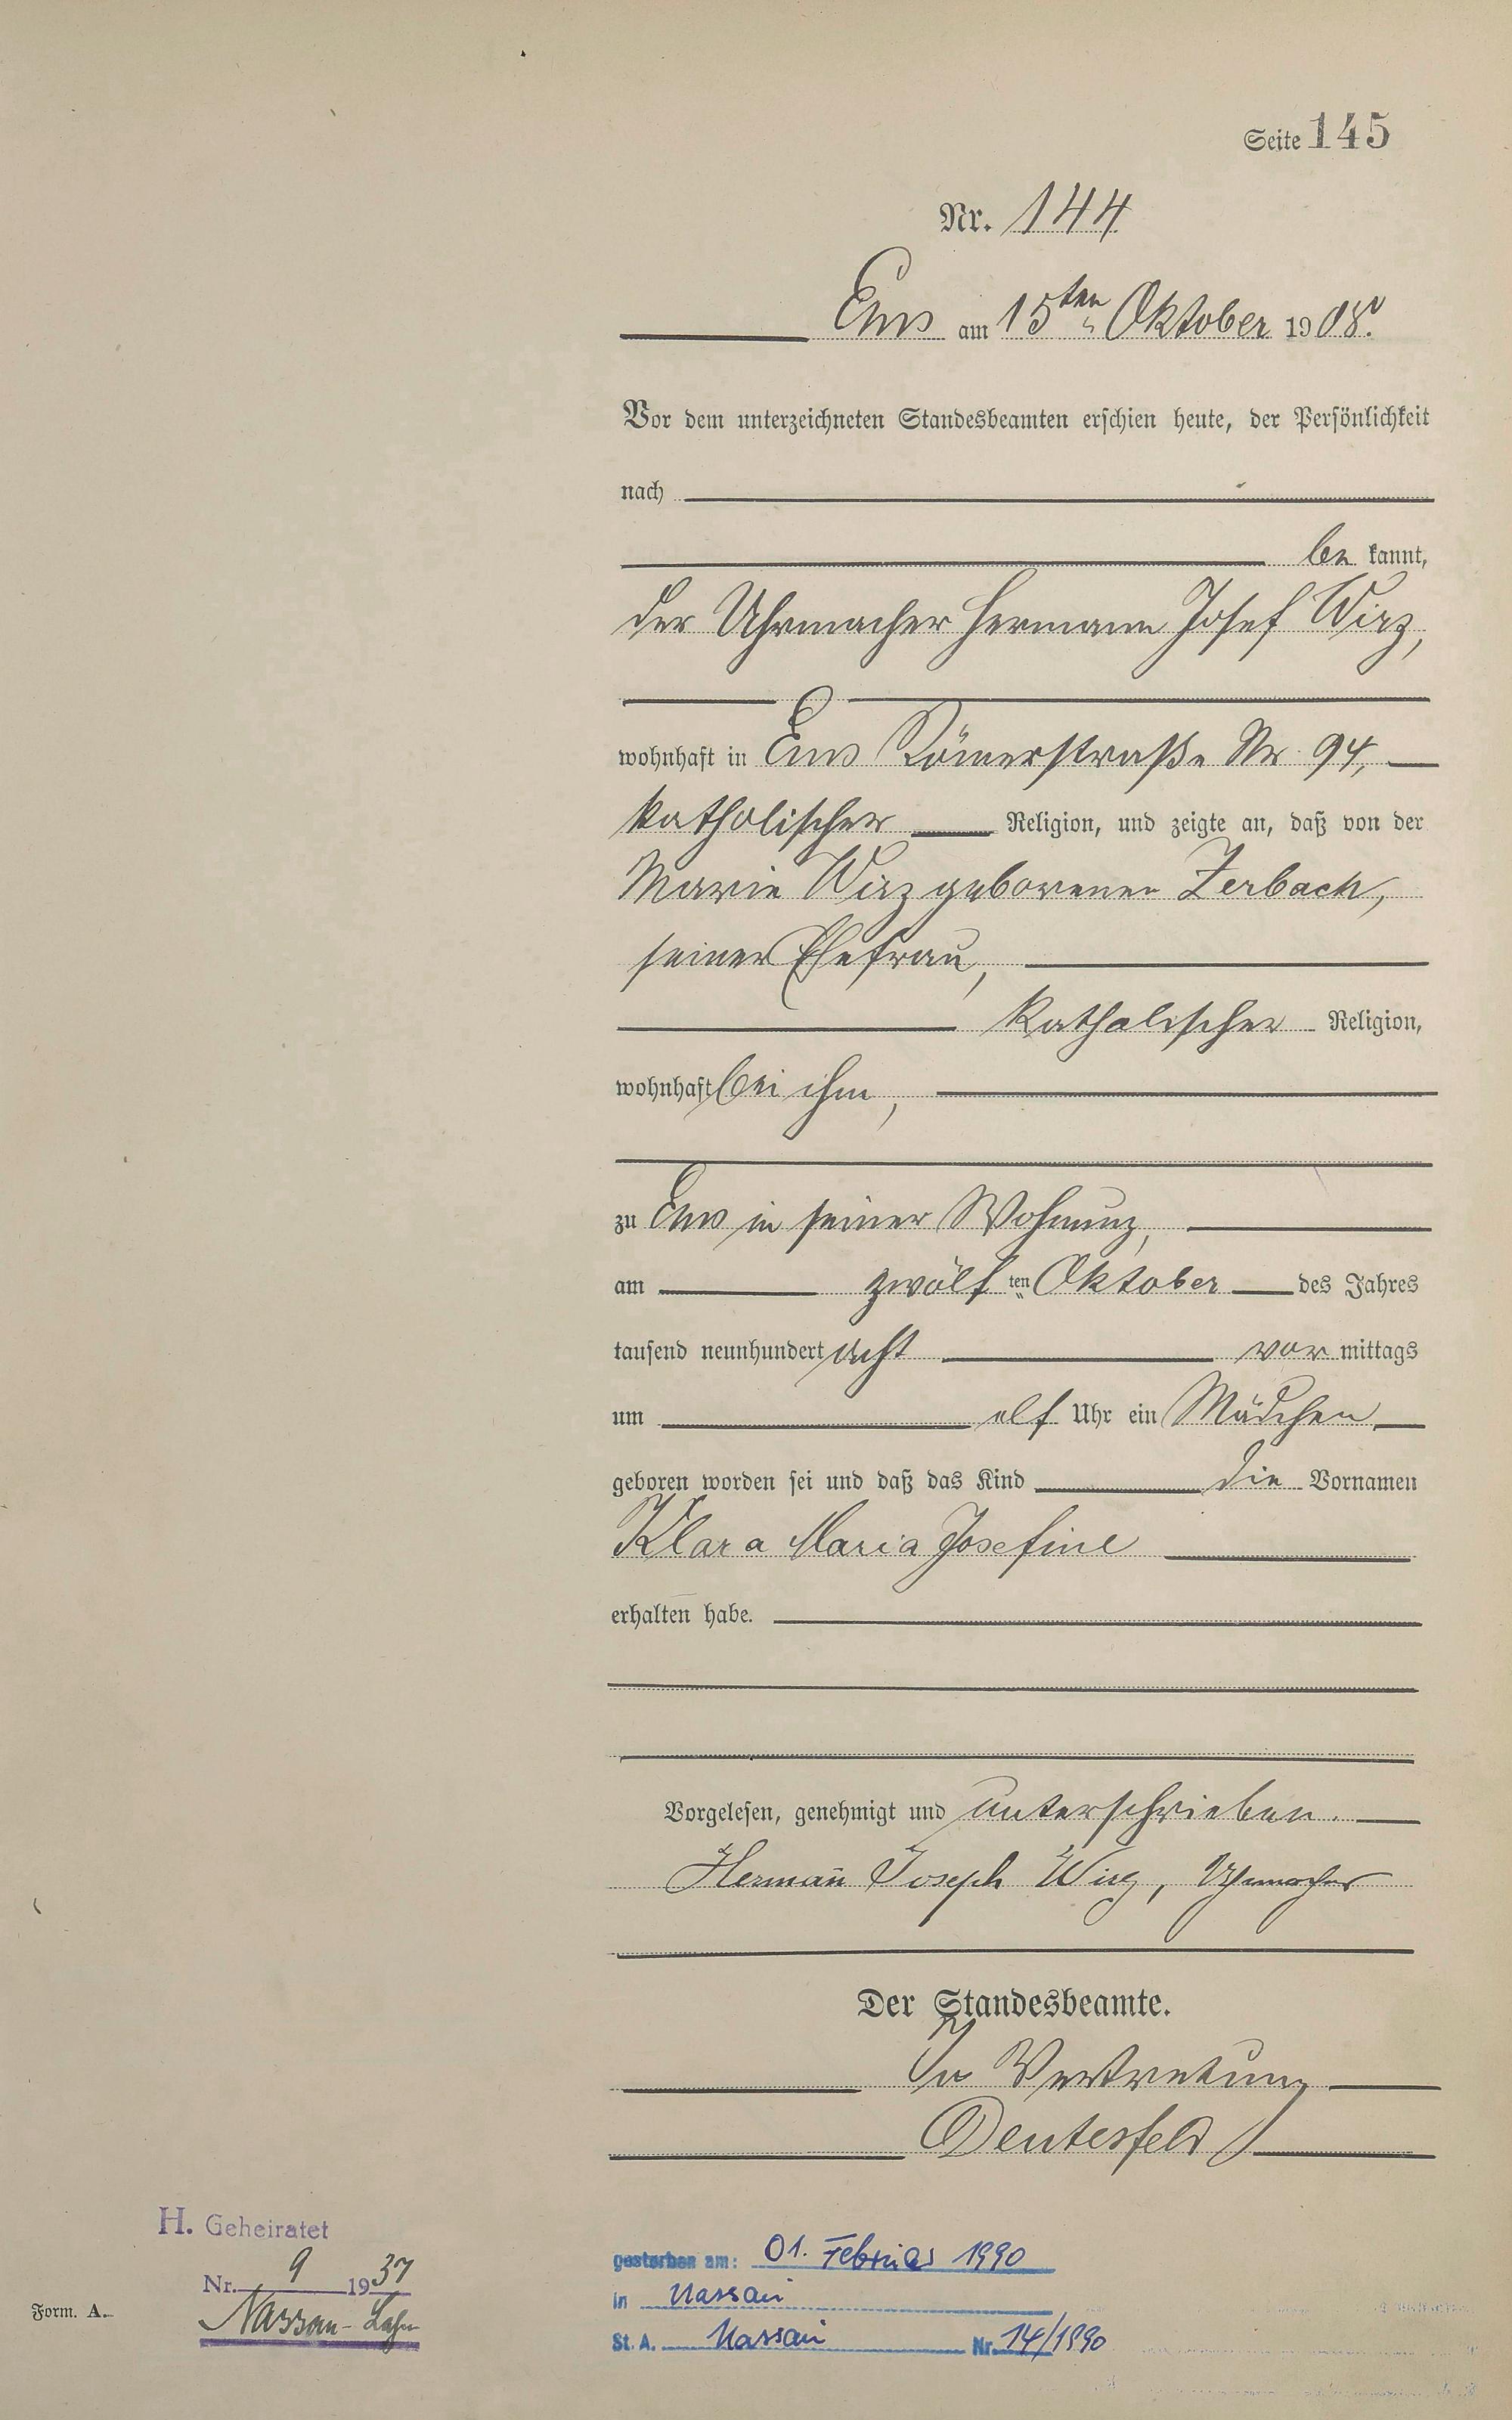 Seite 145
Nr. 144
Ems am 15ten Oktober 1908.
Vor dem unterzeichneten Standesbeamten erschien heute, der Persönlichkeit
nach
be kannt,
der Uhrmacher Hermann Josef Wirz,
wohnhaft in Ems Römerstraße Nr. 94,
katholischer Religion, und zeigte an, daß von der
Marie Wirz geborenen Zerbach,
seiner Ehefrau,
katholischer Religion,
wohnhaft bei ihm,
zu Ems in seiner Wohnung,
am zwölf ten Oktober des Jahres
tausend neunhundert acht vor mittags
um elf Uhr ein Mädchen
geboren worden sei und daß das Kind die Vornamen
Klara Maria Josefine
erhalten habe.
Vorgelesen, genehmigt und unterschrieben.
Hermañ Joseph Wirz, Uhrmacher
Der Standesbeamte.
In Vertretung
Deutesfeld
H. Geheiratet
Nr. 9 1937
Nassau-Lahn
Form. A.
gestorben am: 01. Februar 1990
in Nassau
St. A. Nassau Nr. 14/1990